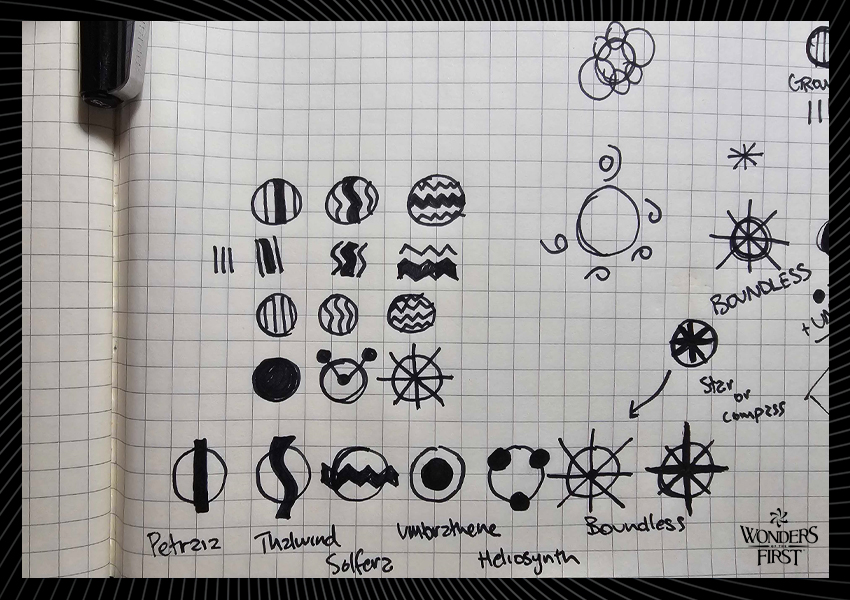 BOUNDLESS
Star
or
compass
Petraia
Thalwind
Solfera
Umbrathene
Heliosynth
Boundless
WONDERS
OF THE
FIRST